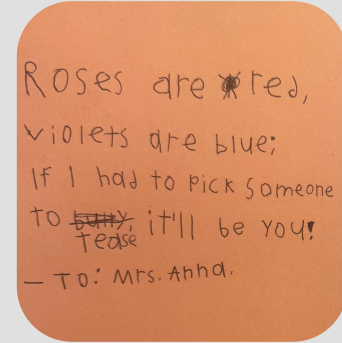 Roses are red,
violets are blue;
If I had to pick someone
to bully, it'll be you!
tease
— To: Mrs. Anna.